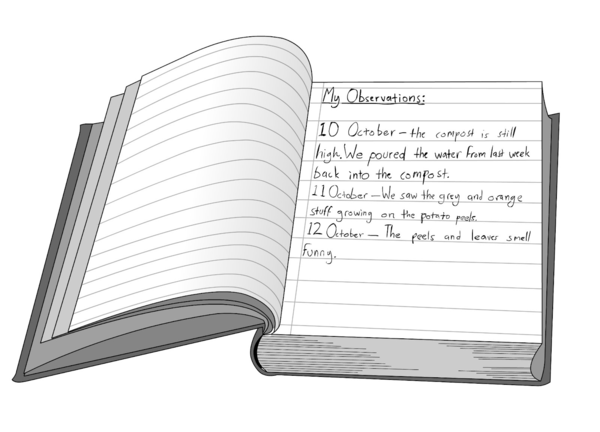 My Observations:
10 October – the compost is still
high. We poured the water from last week
back into the compost.
11 October – We saw the grey and orange
stuff growing on the potato peels.
12 October – The peels and leaves smell
funny.